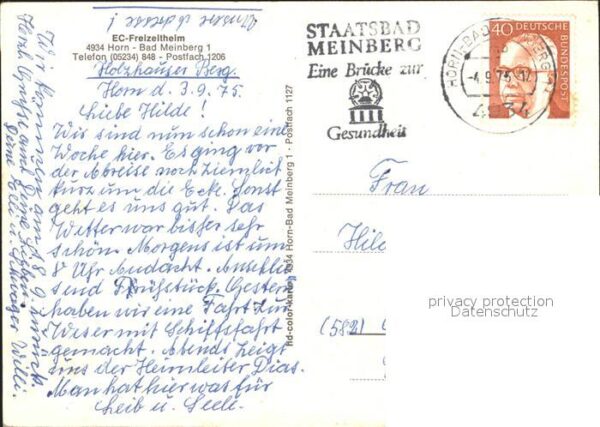 Unsere Adresse !
EC-Freizeitheim
4934 Horn - Bad Meinberg 1
Telefon (05234) 848 - Postfach 1206
Holzhauser Berg.
Horn d. 3.9.75.
Liebe Hilde!
Wir sind nun schon eine
Woche hier. Es ging vor
der Abreise noch ziemlich
kurz um die Ecke. Sonst
geht es uns gut. Das
Wetter war bisher sehr
schön. Morgens ist um
8 Uhr Andacht. Anschlie
send Frühstück. Gestern
haben wir eine Fahrt zur
Weser mit Schiffsfahrt
gemacht. Abends zeigt
uns der Heimleiter Dias.
Man hat hier was für
Leib u. Seele.
Wir kommen am 18.9. zurück.
Herzl. Grüße und
Deine u. Schwager Willi.
fid-color-karte 4934 Horn-Bad Meinberg 1 - Postfach 1127
STAATSBAD
MEINBERG
Eine Brücke zur
Gesundheit
HORN-BAD MEINBERG
-4.9.75.-17
4934
40
DEUTSCHE
BUNDESPOST
Frau
Hild
(582)
privacy protection
Datenschutz